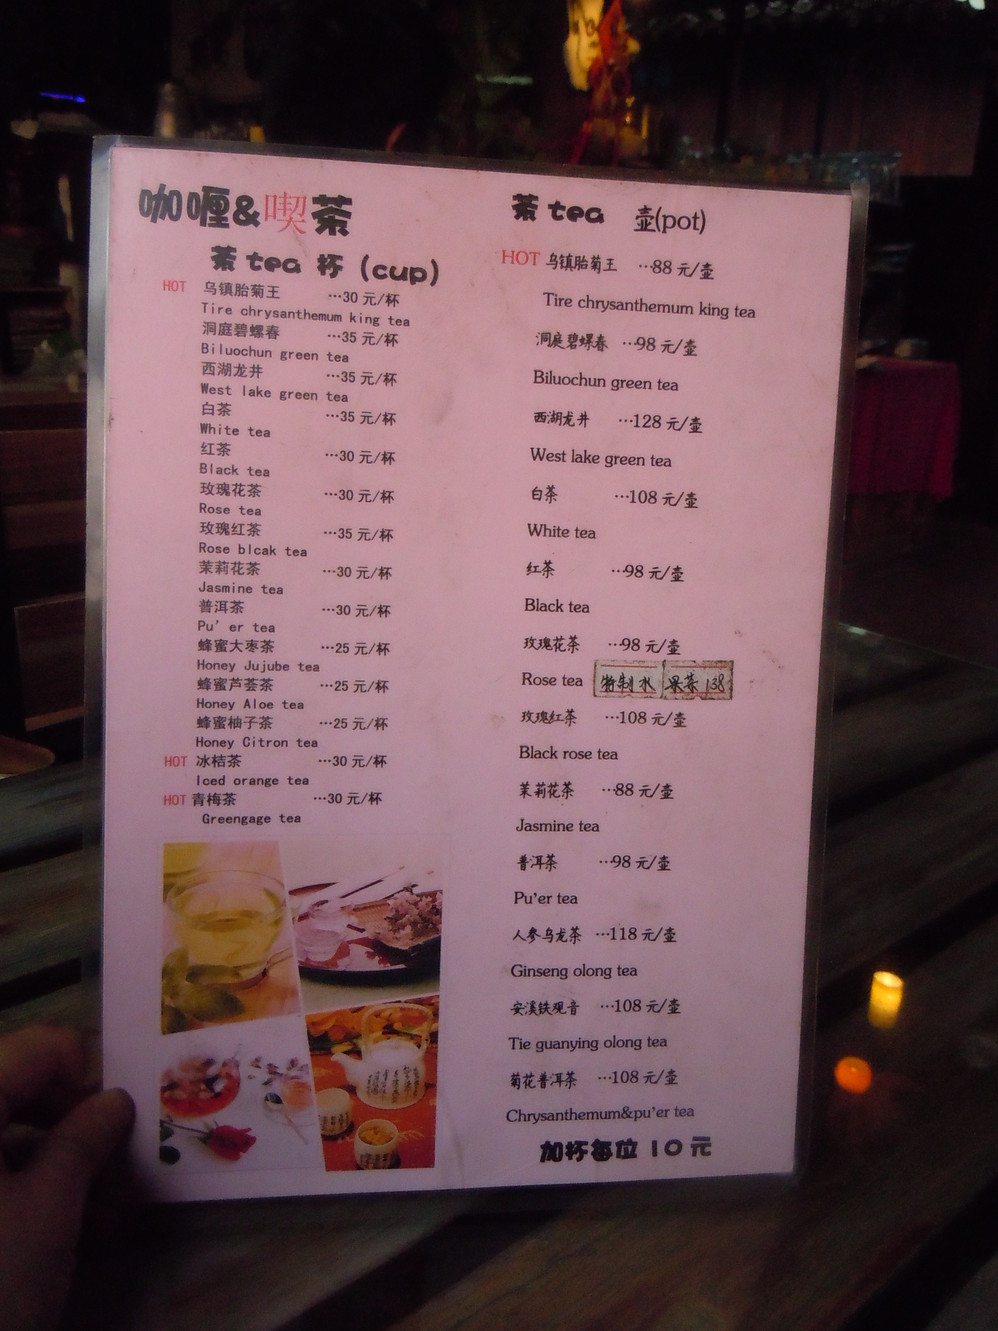 咖喱&喫茶
茶 tea 杯 (cup)
HOT 乌镇胎菊王 ···30 元/杯
Tire chrysanthemum king tea
洞庭碧螺春 ···35 元/杯
Biluochun green tea
西湖龙井 ···35 元/杯
West lake green tea
白茶 ···35 元/杯
White tea
红茶 ···30 元/杯
Black tea
玫瑰花茶 ···30 元/杯
Rose tea
玫瑰红茶 ···35 元/杯
Rose blcak tea
茉莉花茶 ···30 元/杯
Jasmine tea
普洱茶 ···30 元/杯
Pu' er tea
蜂蜜大枣茶 ···25 元/杯
Honey Jujube tea
蜂蜜芦荟茶 ···25 元/杯
Honey Aloe tea
蜂蜜柚子茶 ···25 元/杯
Honey Citron tea
HOT 冰桔茶 ···30 元/杯
Iced orange tea
HOT 青梅茶 ···30 元/杯
Greengage tea
茶 tea 壶(pot)
HOT 乌镇胎菊王 ···88 元/壶
Tire chrysanthemum king tea
洞庭碧螺春 ···98 元/壶
Biluochun green tea
西湖龙井 ···128 元/壶
West lake green tea
白茶 ···108 元/壶
White tea
红茶 ···98 元/壶
Black tea
玫瑰花茶 ···98 元/壶
Rose tea 特制水果茶 138
玫瑰红茶 ···108 元/壶
Black rose tea
茉莉花茶 ···88 元/壶
Jasmine tea
普洱茶 ···98 元/壶
Pu'er tea
人参乌龙茶 ···118 元/壶
Ginseng olong tea
安溪铁观音 ···108 元/壶
Tie guanying olong tea
菊花普洱茶 ···108 元/壶
Chrysanthemum&pu'er tea
加杯每位 10 元